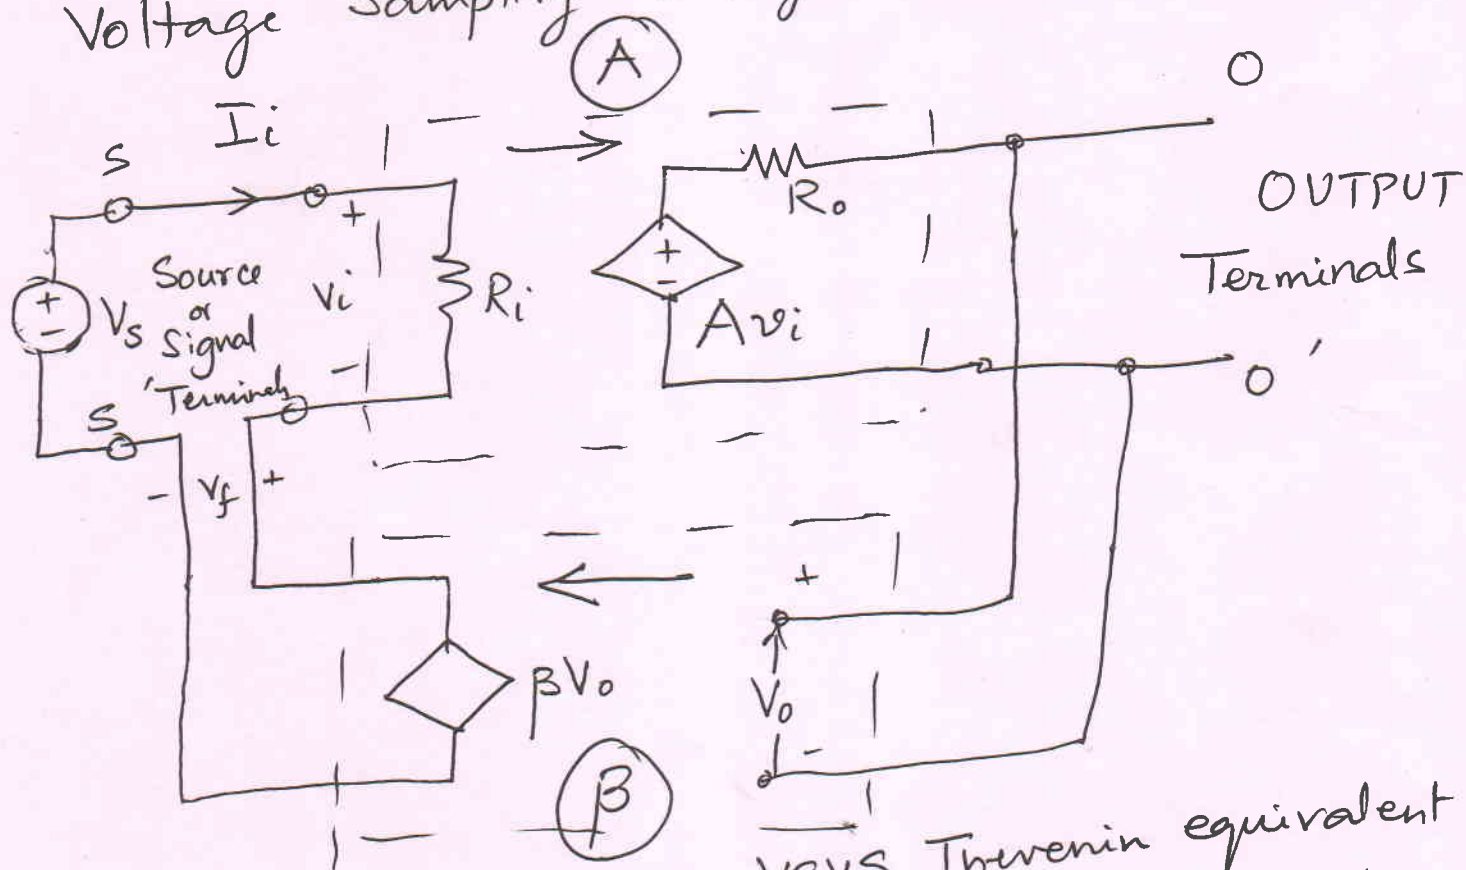 Voltage Sampling
A
O
Ii
S
+
Ro
OUTPUT
Terminals
Source
or
Signal
Terminals
+
-
Vs
Vi
Ri
+
-
Avi
-
O'
S'
- Vf +
+
βVo
Vo
-
β
VCVS Thevenin equivalent